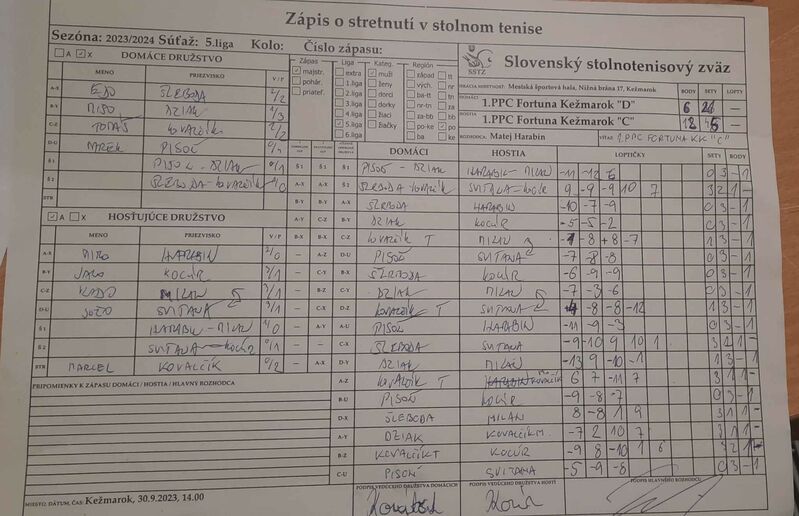 Zápis o stretnutí v stolnom tenise
Sezóna: 2023/2024 Súťaž: 5.liga Kolo: Číslo zápasu:
A X DOMÁCE DRUŽSTVO
MENO PRIEZVISKO V/P
A-X EDO ŠLEBODA 2/2
B-Y MIŠO DZIAK 1/3
C-Z TOMÁŠ KOVALČÍK 2/2
D-U MAREK PISOŇ
Š1 PISOŇ - DZIAK 0/1
Š2 ŠLEBODA - KOVALČÍK 1/0
STR
Zápas
majstr.
pohár.
priateľ.
Liga
extra
1.liga
2.liga
3.liga
4.liga
5.liga
6.liga
Kateg.
muži
ženy
dorci
dorky
žiaci
žiačky
Región
západ tt
vých. nr
ba-tt tn
nr-tn za
za-bb bb
po-ke po
ba ke
SSTZ
Slovenský stolnotenisový zväz
HRACIA MIESTNOSŤ: Mestská športová hala, Nižná brána 17, Kežmarok BODY SETY LOPTY
DOMÁCI 1.PPC Fortuna Kežmarok "D" 6
HOSTIA 1.PPC Fortuna Kežmarok "C" 12
ROZHODCA: Matej Harabin VÍŤAZ 1.PPC FORTUNA KK "C"
A X HOSŤUJÚCE DRUŽSTVO
MENO PRIEZVISKO V/P
A-X MIRO HARABIN 2/0
B-Y JARO KOCÚR 3/1
C-Z RADO MILAN 3/1
D-U JOŽO SVITANA 3/1
Š1 HARABIN - MILAN 1/0
Š2 SVITANA - KOCÚR 0/1
STR MARCEL KOVALČÍK 0/2
DOMÁCI HOSTIA LOPTIČKY SETY BODY
Š1 Š1 Š1 PISOŇ - DZIAK HARABIN - MILAN -11 -12 -6 0 3 - 1
A-X A-X Š2 ŠLEBODA KOVALČÍK SVITANA - KOCÚR 9 -9 -9 10 7 3 2 1 -
B-Y B-Y A-X ŠLEBODA HARABIN -10 -7 -9 0 3 - 1
A-Y C-Z B-Y DZIAK KOCÚR -5 -5 -2 0 3 - 1
B-X B-X C-Z KOVALČÍK T MILAN -8 +8 -7 1 3 - 1
A-Z D-U PISOŇ SVITANA -7 -8 -8 0 3 - 1
C-Y B-X ŠLEBODA KOCÚR -6 -9 -9 0 3 - 1
B-Z C-Y DZIAK MILAN -7 -3 -6 0 3 - 1
C-X D-Z KOVALČÍK T SVITANA -8 -8 -12 1 3 - 1
A-Y A-U PISOŇ HARABIN -11 -9 -3 0 3 - 1
C-X ŠLEBODA SVITANA -9 -10 9 10 1 3 2 1 -
D-Y DZIAK MILAN -13 9 -10 -1 1 3 - 1
A-Z KOVALČÍK T KOVALČÍK 6 7 -11 7 3 1 1 -
B-U PISOŇ KOCÚR -9 -8 -7 0 3 - 1
D-X ŠLEBODA MILAN 8 -8 1 9 3 1 1 -
A-Y DZIAK KOVALČÍK M. -7 2 10 7 3 1 1 -
B-Z KOVALČÍK T KOCÚR -9 8 -10 1 6 3 2 1 -
C-U PISOŇ SVITANA -5 -9 -8 0 3 - 1
PRIPOMIENKY K ZÁPASU DOMÁCI / HOSTIA / HLAVNÝ ROZHODCA
MIESTO, DÁTUM, ČAS: Kežmarok, 30.9.2023, 14.00
PODPIS VEDÚCEHO DRUŽSTVA DOMÁCICH
PODPIS VEDÚCEHO DRUŽSTVA HOSTÍ
PODPIS HLAVNÉHO ROZHODCU